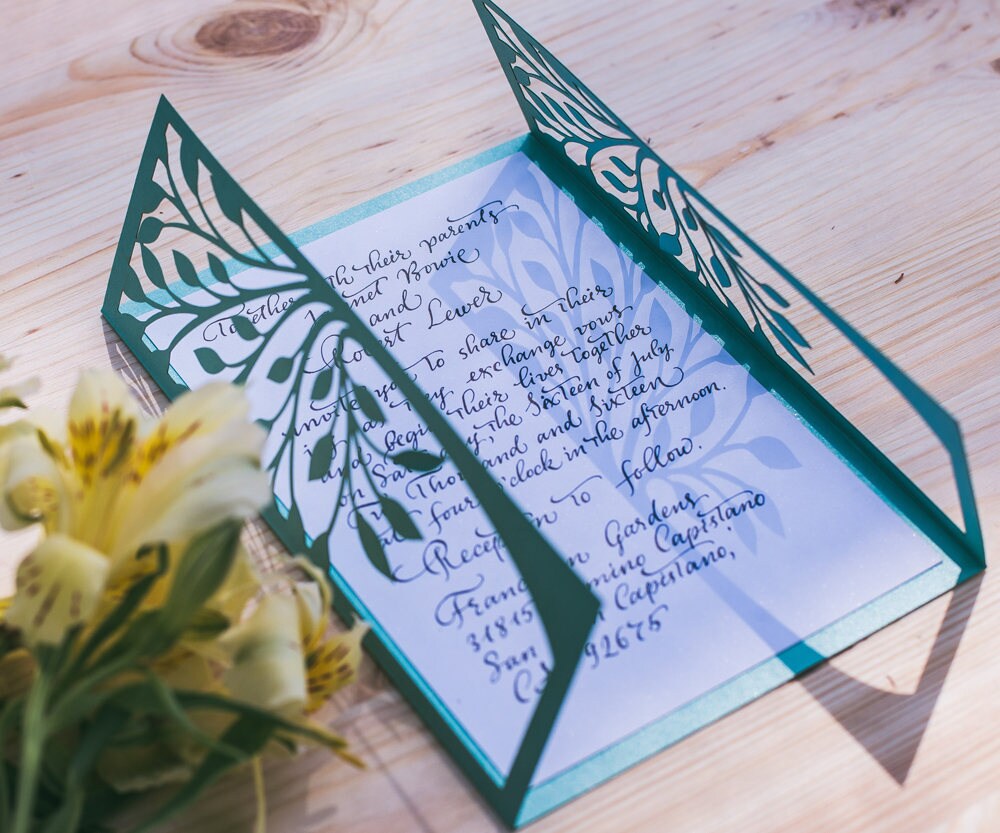 Together with their parents
Janet Bowie
and
Robert Lewer
invite you to share in their
they exchange vows.
and begin their lives together
on Saturday, the Sixteen of July
Two Thousand and Sixteen
at four o'clock in the afternoon.
Reception to follow.
Gardens
31815 Camino Capistano
San Capistano,
92675